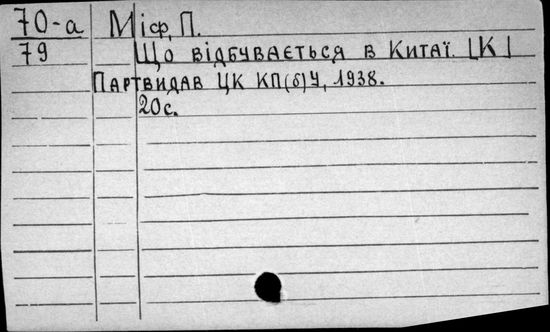 70-а Міф, П.
79 Що відбувається в Китаї [К]
Партвидав ЦК КП(б)У, 1938.
20с.